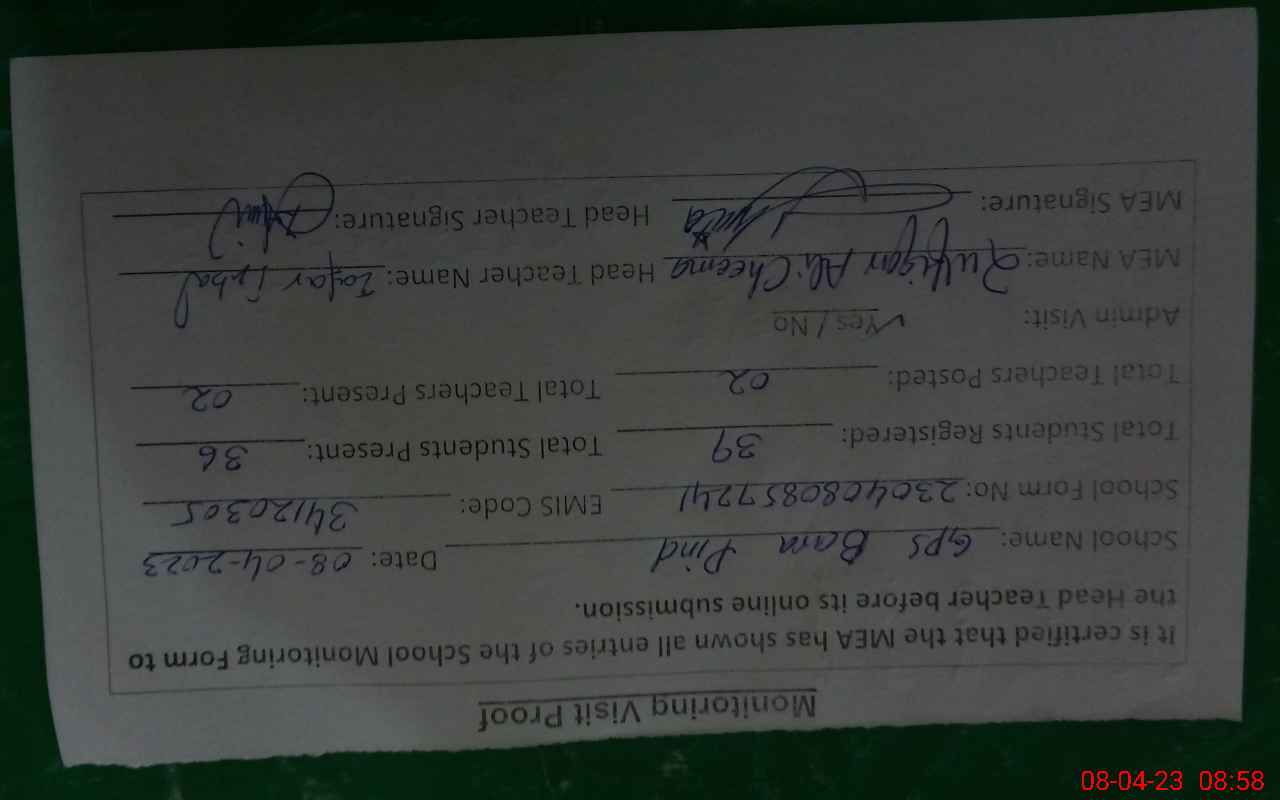 Monitoring Visit Proof
It is certified that the MEA has shown all entries of the School Monitoring Form to
the Head Teacher before its online submission.
School Name: GPS Bara Pind Date: 08-04-2023
School Form No: 2304080857241 EMIS Code: 34120305
Total Students Registered: 39 Total Students Present: 36
Total Teachers Posted: 02 Total Teachers Present: 02
Admin Visit: ✓Yes / No
MEA Name: Zulfiqar Ali Cheema Head Teacher Name: Zafar Iqbal
MEA Signature: Head Teacher Signature:
08-04-23 08:58